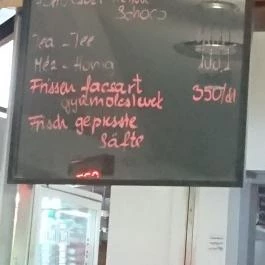 Schoko
Tea - Tee
Méz - Honig
Frissen facsart
gyümölcslevek 350/dl
Frisch gepresste
Säfte